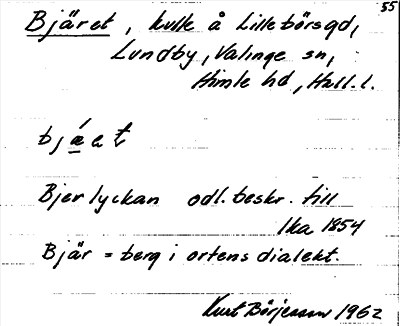 55
Bjäret, kulle å Lillebörsgd,
Lundby, Valinge sn,
Himle hd, Hall. l.
bjæ̀et
Bjerlyckan odl. beskr. till
lka 1854
Bjär = berg i ortens dialekt.
Kurt Börjesson 1962